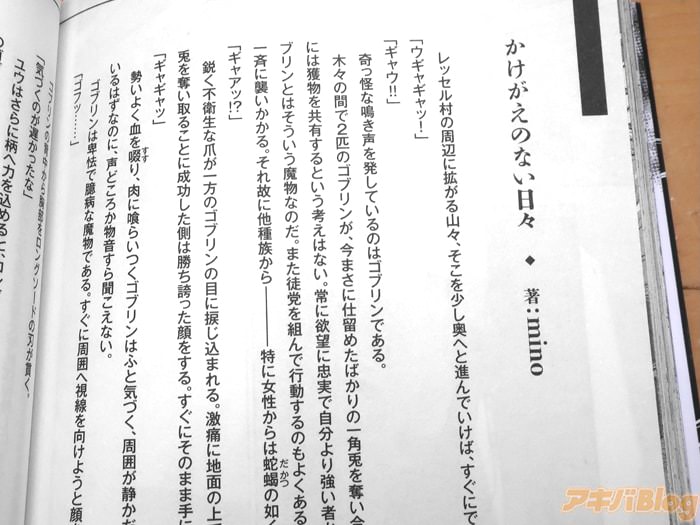 かけがえのない日々 ◆ 著：mino
レッセル村の周辺に拡がる山々、そこを少し奥へと進んでいけば、すぐにで
「ウギャギャッ！」
「ギャウ!!」
奇っ怪な鳴き声を発しているのはゴブリンである。
木々の間で2匹のゴブリンが、今まさに仕留めたばかりの一角兎を奪い合
には獲物を共有するという考えはない。常に欲望に忠実で自分より強い者
ブリンとはそういう魔物なのだ。また徒党を組んで行動するのもよくある
一斉に襲いかかる。それ故に他種族から――特に女性からは蛇蝎の如く
だかつ
「ギャアッ!?」
鋭く不衛生な爪が一方のゴブリンの目に捩じ込まれる。激痛に地面の上で
兎を奪い取ることに成功した側は勝ち誇った顔をする。すぐにそのまま手に
「ギャギャッ」
勢いよく血を啜り、肉に喰らいつくゴブリンはふと気づく、周囲が静かだ
すす
いるはずなのに、声どころか物音すら聞こえない。
ゴブリンは卑怯で臆病な魔物である。すぐに周囲へ視線を向けようと顔
「ゴブッ……」
ゴブリンの背中から胸部をロングソードの刃が貫く。
「気づくのが遅かったな」
ユウはさらに柄へ力を込めると、ロング
アキバBlog